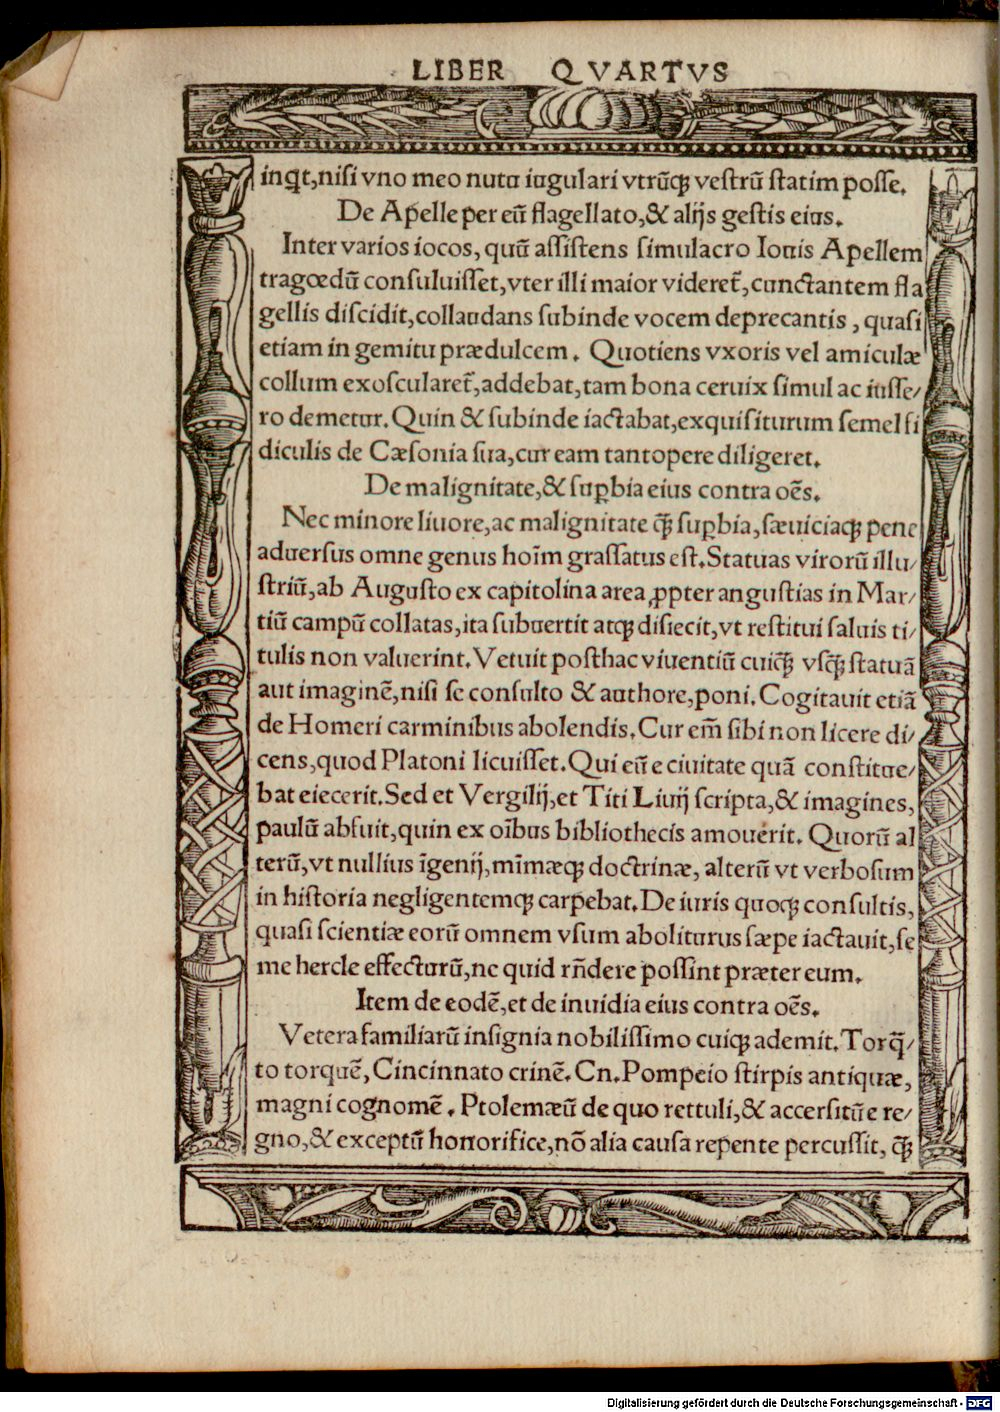 LIBER QVARTVS
inꝗt,niſi vno meo nutu iugulari vtrūꝙ veſtrū ſtatim poſſe.
De Apelle per eū flagellato,& alijs geſtis eius.
Inter varios iocos, quū aſſiſtens ſimulacro Iouis Apellem
tragœdū conſuluiſſet,vter illi maior videret̃,cunctantem fla
gellis diſcidit,collaudans ſubinde vocem deprecantis , quaſi
etiam in gemitu prædulcem . Quotiens vxoris vel amiculæ
collum exoſcularet̃,addebat,tam bona ceruix ſimul ac iuſſe/
ro demetur. Quin & ſubinde iactabat,exquiſiturum ſemel fi
diculis de Cæſonia ſua,cur eam tantopere diligeret.
De malignitate,& ſuꝑbia eius contra oēs.
Nec minore liuore,ac malignitate ꝙ̃ ſuꝑbia, ſæuiciaꝙ pene
aduerſus omne genus hoīm graſſatus eſt.Statuas virorū illu/
ſtriū,ab Auguſto ex capitolina area ꝓpter anguſtias in Mar/
tiū campū collatas,ita ſubuertit atꝙ diſiecit,vt reſtitui ſaluis ti/
tulis non valuerint.Vetuit poſthac viuentiū cuiꝙ̃ vſꝙ̃ ſtatuā
aut imaginē,niſi ſe conſulto & authore,poni. Cogitauit etiā
de Homeri carminibus abolendis.Cur em̃ ſibi non licere di/
cens,quod Platoni licuiſſet.Qui eū e ciuitate quā conſtitue/
bat eiecerit.Sed et Vergilij,et Titi Liuij ſcripta,& imagines,
paulū abfuit,quin ex oībus bibliothecis amouerit. Quorū al
terū,vt nullius īgenij,mīmæꝙ doctrinæ, alterū vt verboſum
in hiſtoria negligentemꝙ carpebat.De iuris quoꝙ conſultis,
quaſi ſcientiæ eorū omnem vſum aboliturus ſæpe iactauit,ſe
me hercle effecturū,ne quid rñdere poſſint præter eum.
Item de eodē,et de inuidia eius contra oēs.
Vetera familiarū inſignia nobiliſſimo cuiꝙ ademit.Torq̃/
to torquē,Cincinnato crinē.Cn.Pompeio ſtirpis antiquæ,
magni cognomē . Ptolemæū de quo rettuli,& accerſitū e re/
gno,& exceptū honorifice,nō alia cauſa repente percuſſit, ꝙ̃
Digitalisierung gefördert durch die Deutsche Forschungsgemeinschaft - DFG